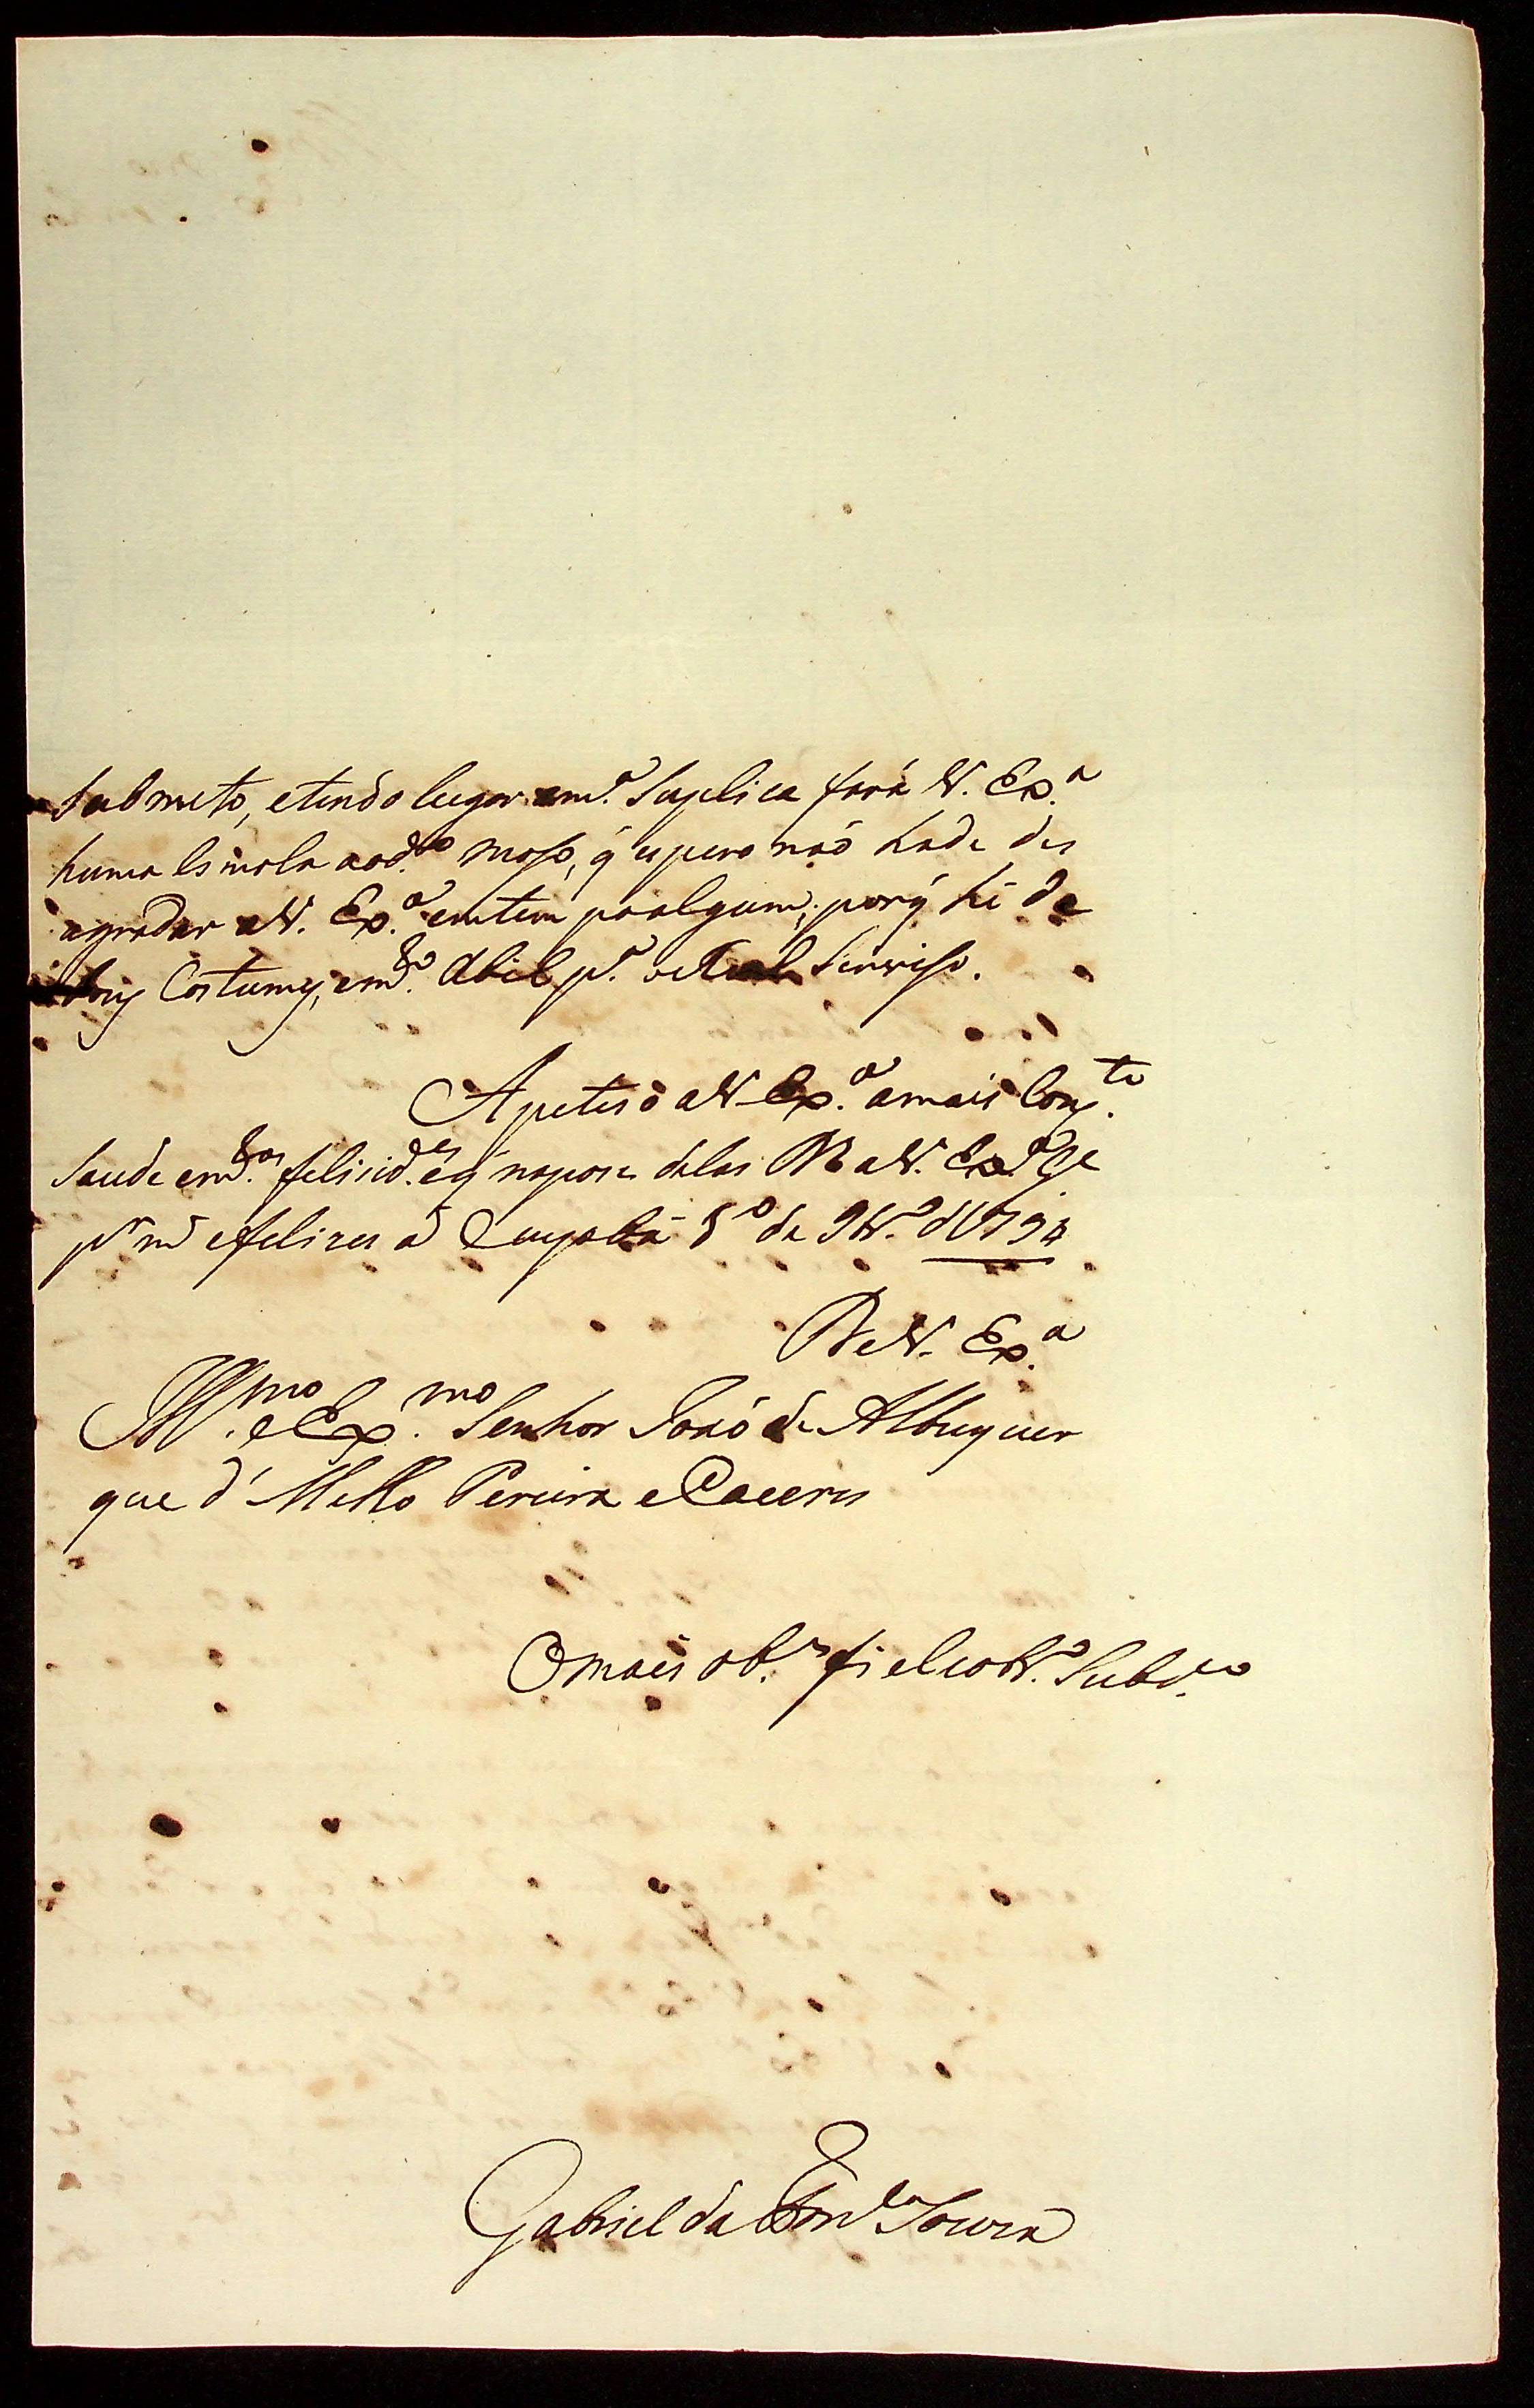 Submeto, etendo lugar em.ª Suplica fará V. Ex.ª
huma Esmola aod.to Moso, q' espero naõ hade des
agradar aV. Ex.ª emtem poalgum; porq' hé de
bons Costumes, em.to Abil p.ª oReal Serviso.
Apeteso aV. Ex.ª amais Conp.te
Saude em.tas felisid.es eq' naposse delas D.s aV. Ex.ª G.e
p.r m.s efelizes a.s Cuyabá 8.º de 9br.º d1794
DeV. Ex.ª
Ill.mo eEx.mo Senhor Joaõ de Albuquer
que d' Mello Pereira eCaceres
Omais ob.e fiel Subd.to
Gabriel da Fon.ca Souza